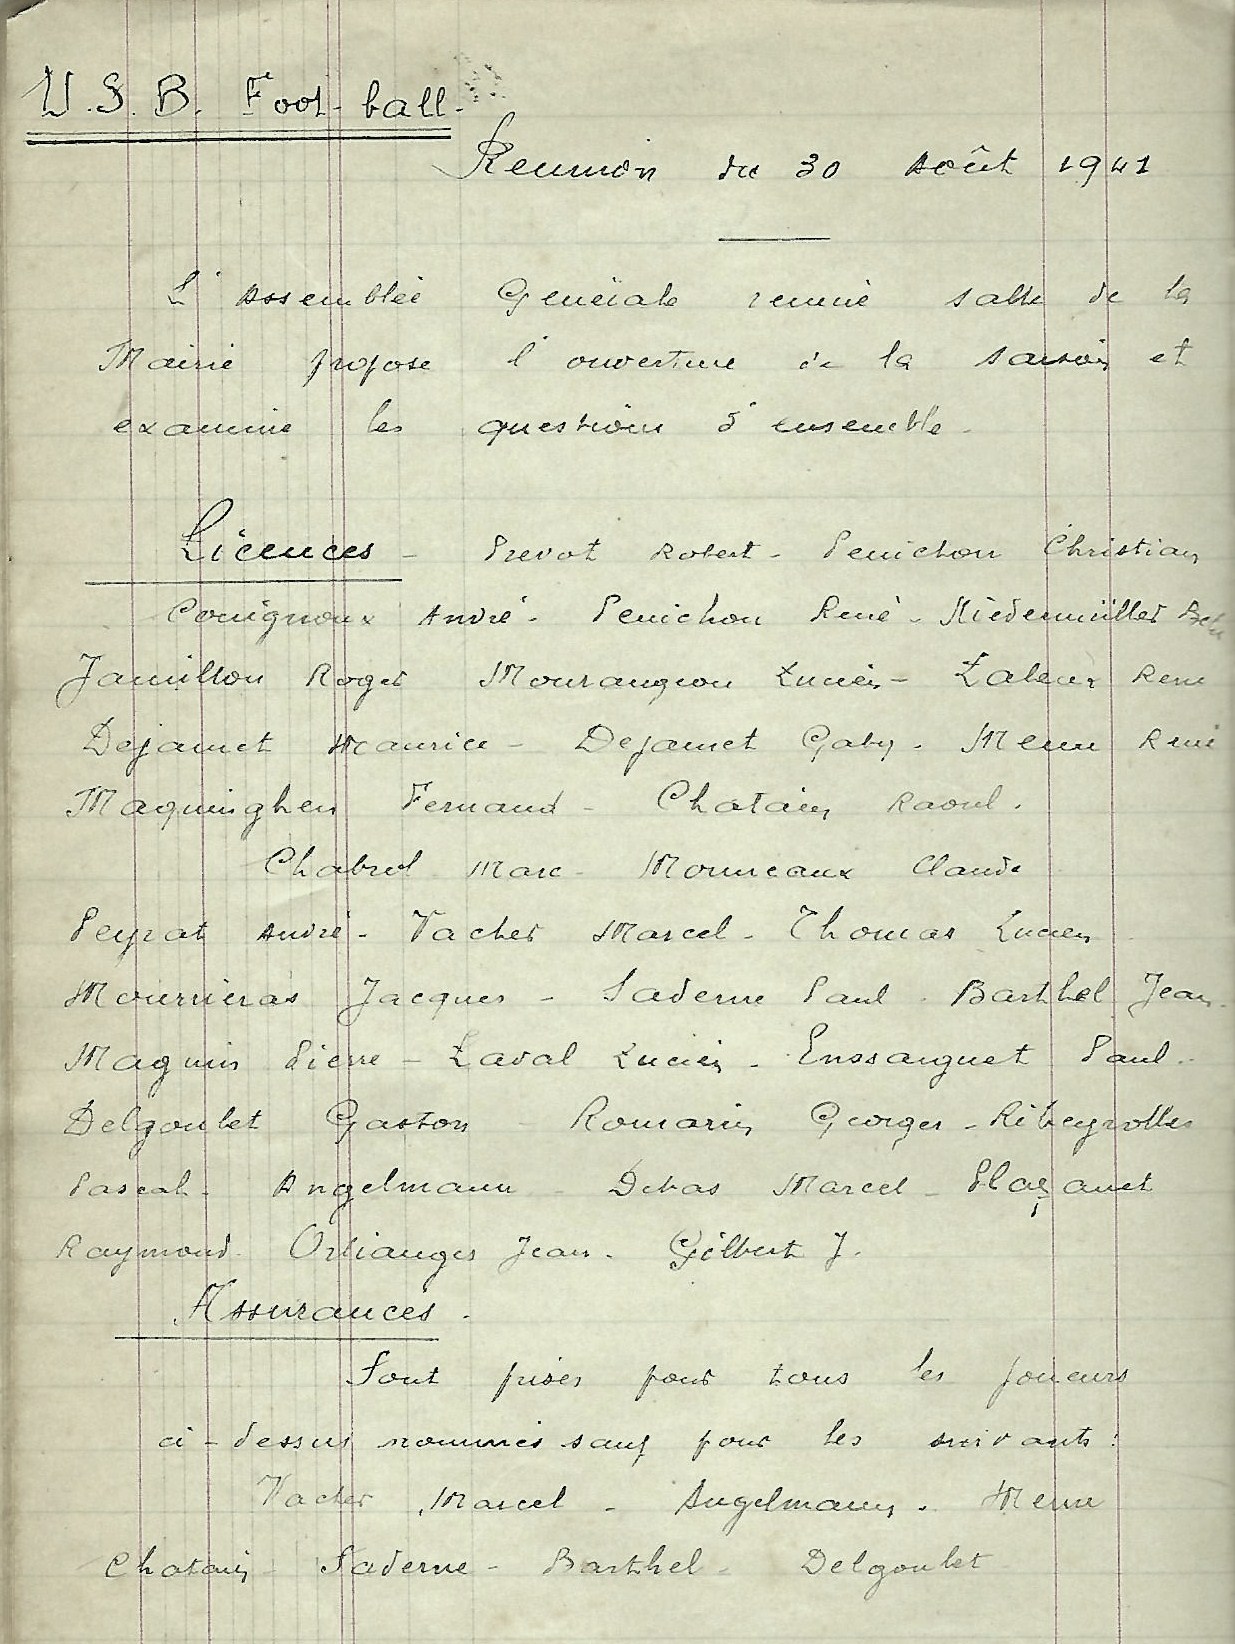 U.S.B. Foot-ball.
Réunion du 30 Août 1941
L'Assemblée Générale réunie salle de la
Mairie propose l'ouverture de la saison et
examine les questions d'ensemble.
Licences - Prevot Robert - Penichon Christian
Couignoux André - Penichon René - Niedermüller
Jamilloux Roger Mourangeon Lucien - Laleux René
Dejamet Maurice - Dejamet Gaby - Menu René
Maquinghen Fernand - Chatain Raoul.
Chabrol Marc - Monneaux Claude
Peyrat André - Vacher Marcel - Thomas Lucien
Mourrieras Jacques - Saderne Paul - Barthel Jean.
Magnin Pierre - Laval Lucien - Enssarguet Paul.
Delgoulet Gaston - Romarin Georges - Ribeyrolles
Pascal - Angelmann - Debas Marcel - Plaçanet
Raymond - Orlianges Jean - Gilbert J.
Assurances.
Sont prises pour tous les joueurs
ci-dessus nommés sauf pour les suivants :
Vacher Marcel - Angelmann - Menu
Chatain - Saderne - Barthel - Delgoulet